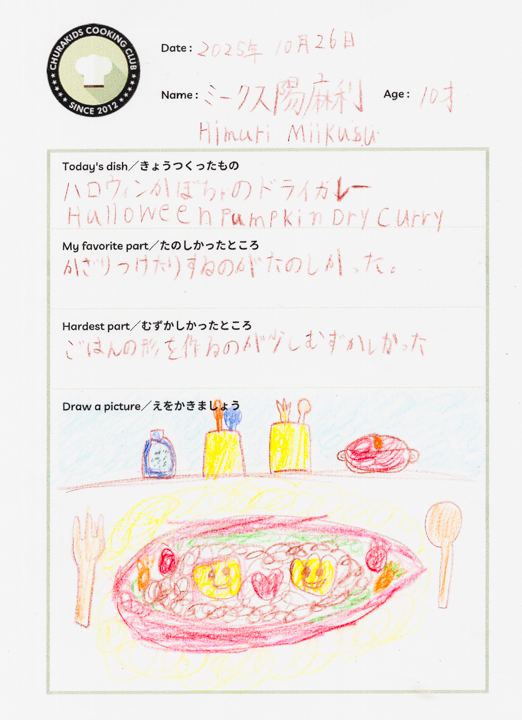 CHURAKIDS COOKING CLUB
SINCE 2012
Date : 2025年 10月26日
Name : ミークス陽麻利 Age : 10才
Himari Miikusu
Today's dish／きょうつくったもの
ハロウィンかぼちゃのドライカレー
Halloween Pumpkin Dry Curry
My favorite part／たのしかったところ
かざりつけたりするのがたのしかった。
Hardest part／むずかしかったところ
ごはんの形を作るのが少しむずかしかった
Draw a picture／えをかきましょう